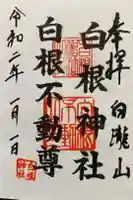 奉拝 白瀧山
白根神社
白根不動尊
令和二年一月一日